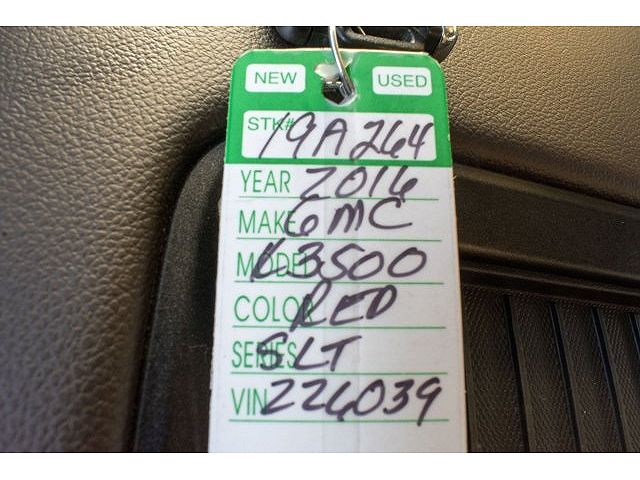 NEW USED
STK# 19A264
YEAR 2016
MAKE GMC
MODEL K3500
COLOR RED
SERIES SLT
VIN 226039